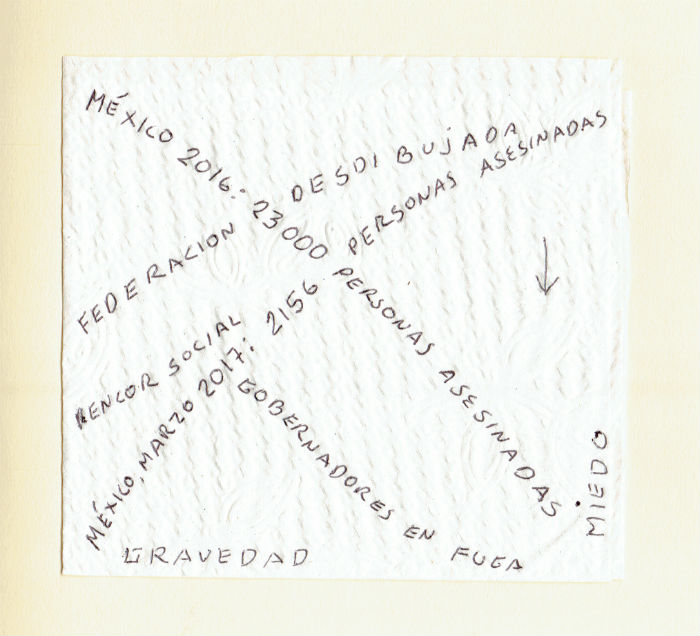 MÉXICO 2016: 23000 PERSONAS ASESINADAS
FEDERACION DESDIBUJADA
RENCOR SOCIAL
MÉXICO, MARZO 2017: 2156 PERSONAS ASESINADAS
GOBERNADORES EN FUGA
MIEDO
GRAVEDAD